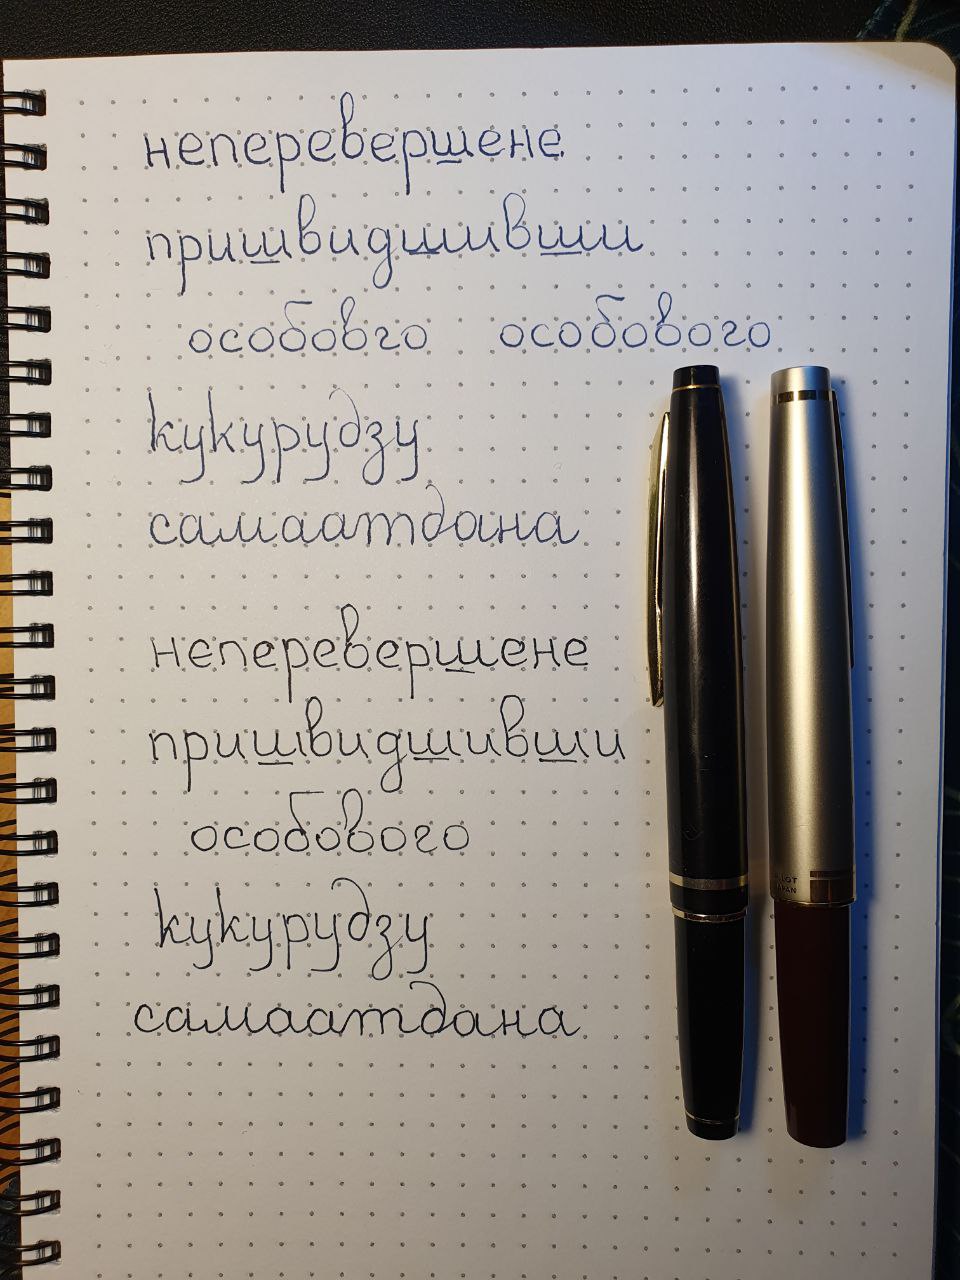 неперевершене
пришвидшивши
особовго особового
кукурудзу
самаатдана
неперевершене
пришвидшивши
особового
кукурудзу
самаатдана